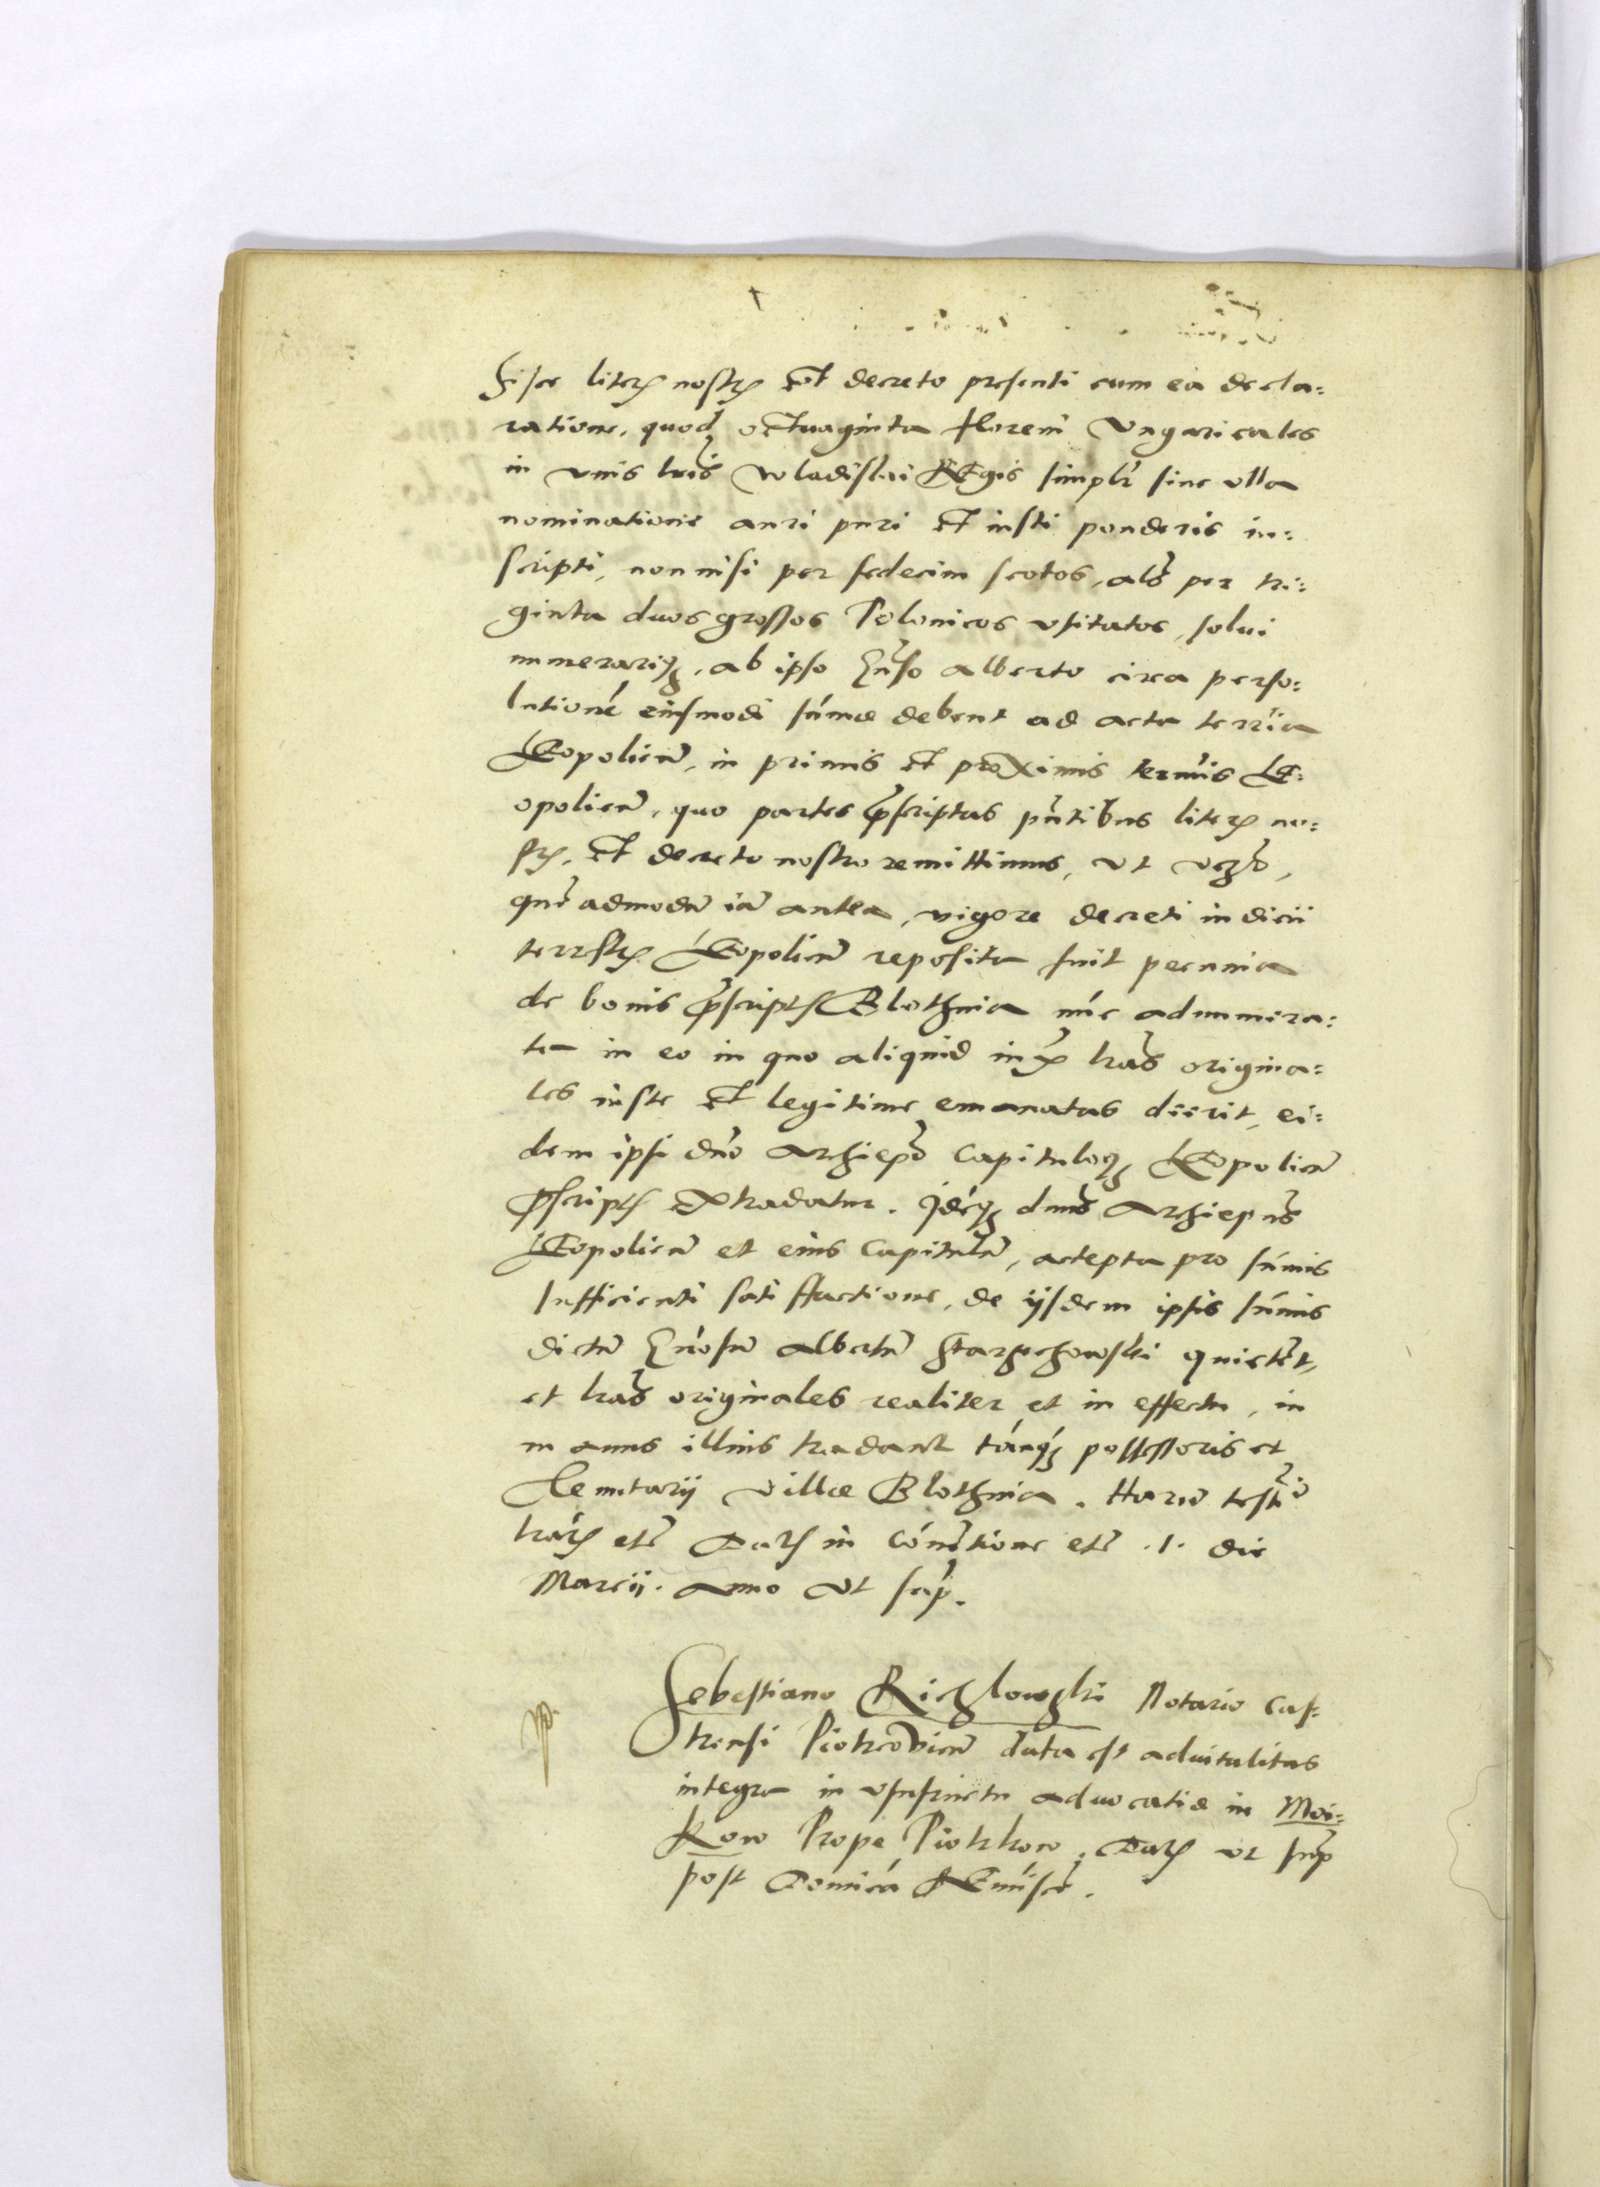 Hisce literis nostris et decreto presenti cum ea decla:
ratione, quod octuaginta floreni Vngaricales
in vnis lris Wladislai REgis simplr sine vlla
nominatione auri puri et iusti ponderis in:
scripti, non nisi per sedecim scotos, als per tri:
ginta duos grossos Polonicos vsitatos, solui
numerariq, ab ipso Gnso Alberto circa perso:
lutione eiusmodi sume debent ad acta terria
LEopolien, in primis et proximis termis LE:
opolien, quo partes pscriptas pntibus literis no:
stris, et decreto nostro remittimus, vt
queadmodu ia antea, vigore decreti iudicii
terrstris LEopolien reposita fuit pecunia
de bonis pscriptis Blothnia nuc adnumera:
ta in eo in quo aliquid iux lras origina:
les iuste et legitime emanatas dierit, ei:
dem ipsi dno Archiepo Capituloq LEopolien
pscriptis extradatur. Ideq dnus Archiepus
LEopolien et eius Capitulu, accepta pro sumis
sufficienti satisfactione, de ijsdem ipsis sumis
dictu Gnosu Albertu Starzechowski quietet,
et lras originales realiter et in effectu, in
manus illius tradant tanq possessoris et
Remitarij villae Blothnia. Haru testio
lraris etc Datis in Conuetione etc .1. die
Marcii. Anno Vt sup.
Sebestiano Richlowski Notario Cas:
trensi Piotrcovien data est aduitalitas
integra in vsufructu aduocatiae in Moi:
kow Prope Piotrkow. Datis vt sup
post Domica REmisce.